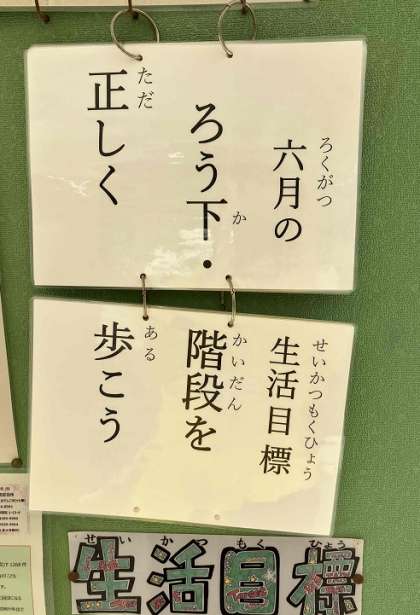 ろくがつ
六月の
せいかつもくひょう
生活目標
か
ろう下・
かいだん
階段を
ただ
正しく
ある
歩こう
せいかつもくひょう
生活目標